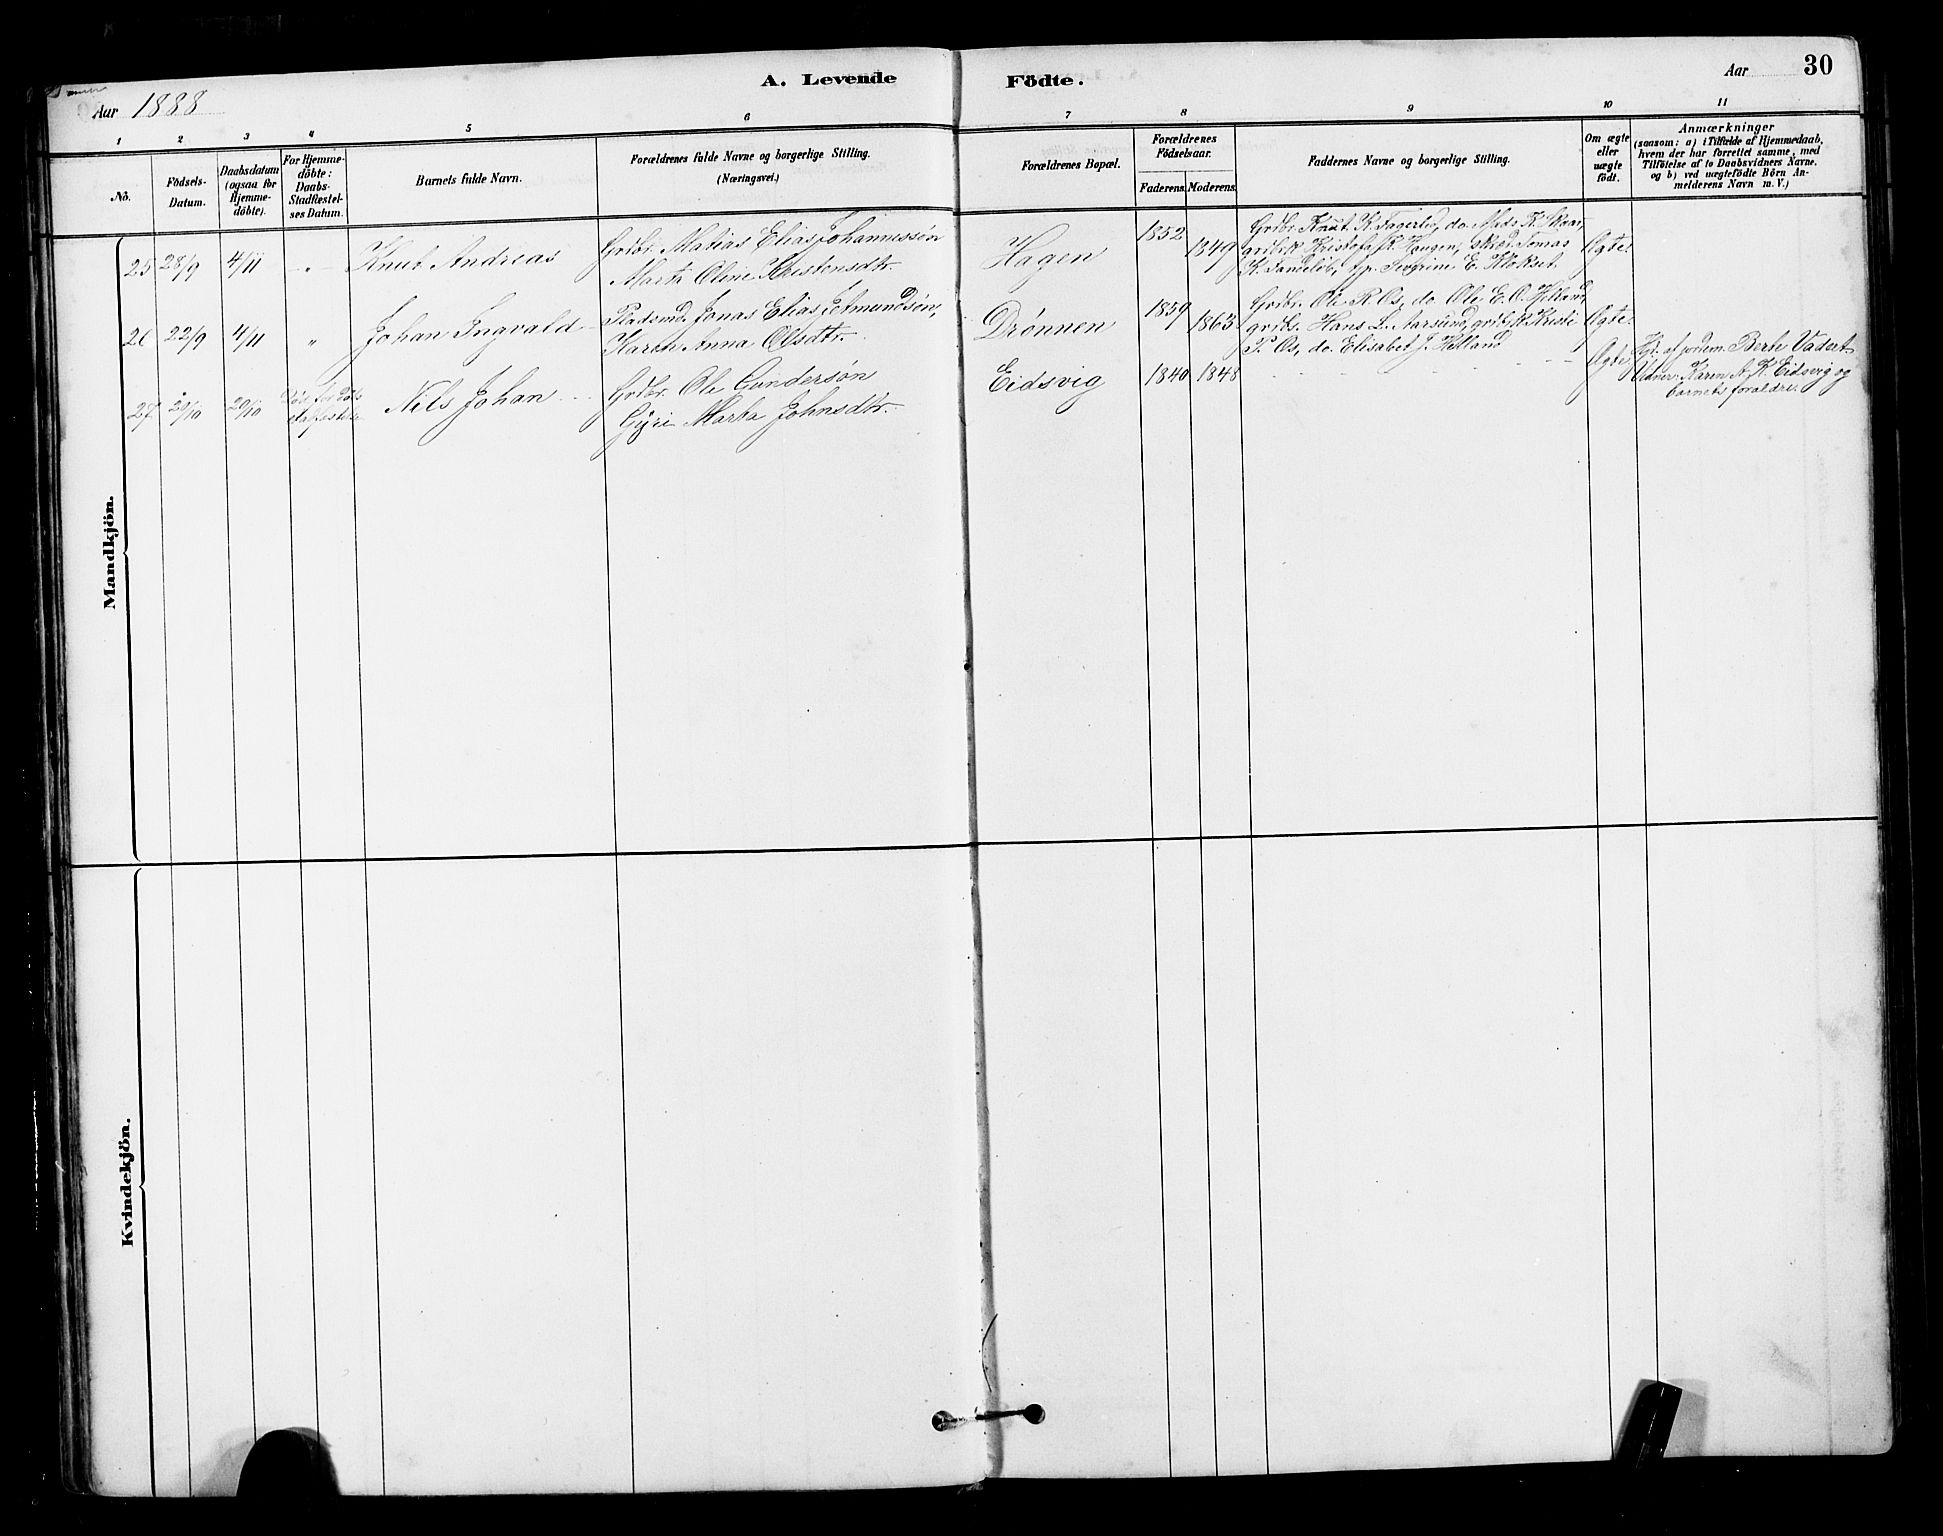 A. Levende Födte.
Aar 30
Aar 1888
1 2 3 4 5 6 7 8 9 10 11
No.
Födsels-
Datum.
Daabsdatum
(ogsaa for
Hjemme-
döbte).
For Hjemme-
döbte:
Daabs-
Stadfæstel-
ses Datum.
Barnets fulde Navn.
Forældrenes fulde Navne og borgerlige Stilling.
(Næringsvei.)
Forældrenes Bopæl.
Forældrenes
Födselsaar.
Faderens. Moderens.
Faddernes Navne og borgerlige Stilling.
Om ægte
eller
uægte
födt.
Anmærkninger
(saasom: a) i Tilfælde af Hjemmedaab,
hvem der har forrettet samme, med
Tilföielse af to Daabsvidners Navne.
og b) ved uægtefödte Börn An-
melderens Navn m. V.)
Mandkjön.
25 28/9 4/11 - " - Knut Andreas
Grdbr. Matias Elias Johannessøn
Marta Oline Kristensdtr.
Hagen 1852 1849
Grdbr. Knut K. Fagerli, do. Mads K. Skaar,
grdbrk. Kristofa R. Haugen, Tomas
K. E. Klokset
Ægte.
26 22/9 4/11 " Johan Ingvald
Pladsmd. Jonas Elias Edmundsøn,
Karen Anna Olsdtr.
Drønnen 1859 1863
Grdbr. Ole R. Os, do. Ole E. O. Hilland,
grdbs. Hans L. Aarsund, Kristi
P. Os, do. Elisabet J. Helland
Ægte.
27 20/10 Død før
Nils Johan
Grdbr. Ole Gundersøn
Gjri Marta Johnsdtr.
Eidsvig 1840 1848
Ægte
Hjd. af jordem. Berte Vadset
Vidner: Karen A. K. Eidsvig og
barnets forældre.
Kvindekjön.